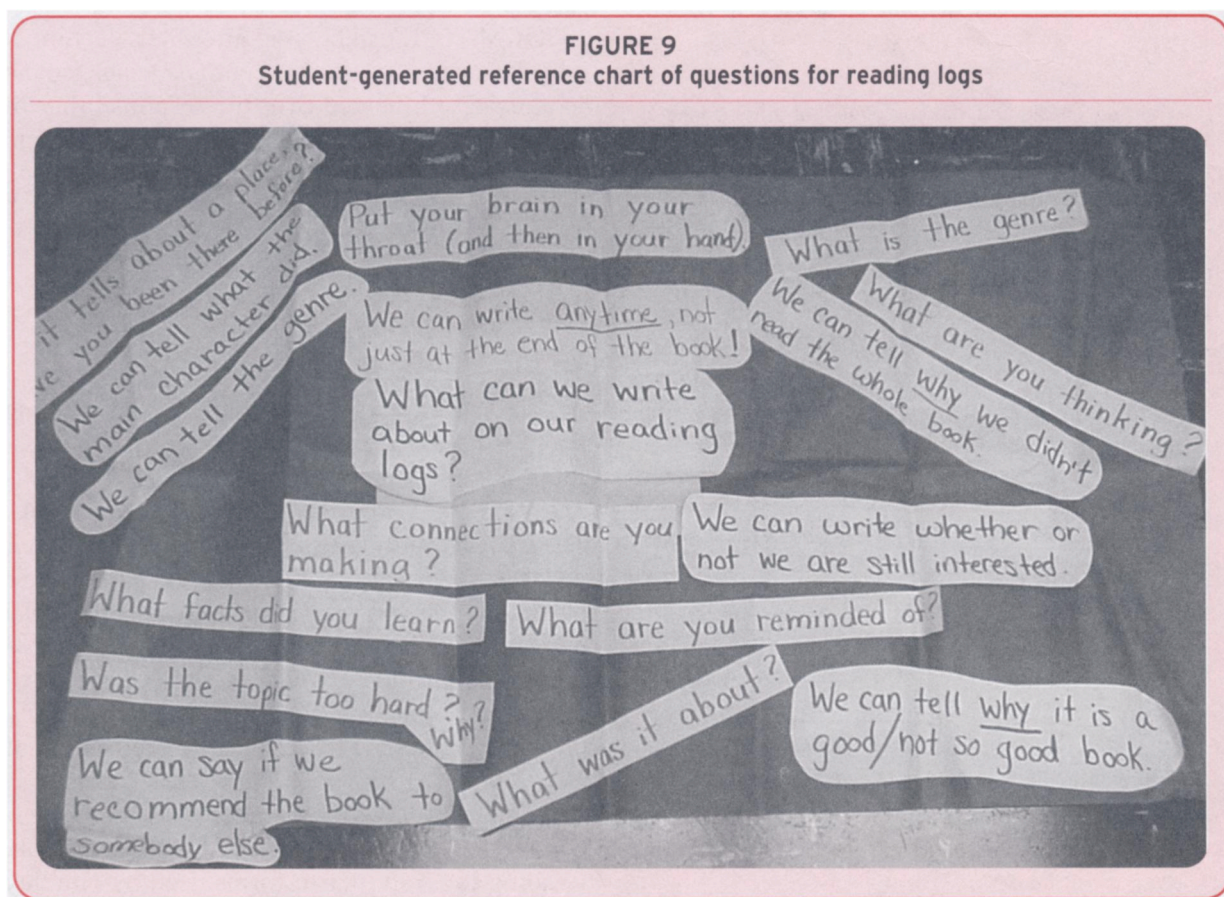 FIGURE 9
Student-generated reference chart of questions for reading logs
it tells about a place,
you been there before?
We can tell what the
main character did.
We can tell the genre.
Put your brain in your
throat (and then in your hand).
We can write anytime, not
just at the end of the book!
What can we write
about on our reading
logs?
What is the genre?
What are you thinking?
We can tell why we didn't
read the whole book.
What connections are you
making?
We can write whether or
not we are still interested.
What facts did you learn?
What are you reminded of?
Was the topic too hard?
Why?
What was it about?
We can tell why it is a
good/not so good book.
We can say if we
recommend the book to
somebody else.